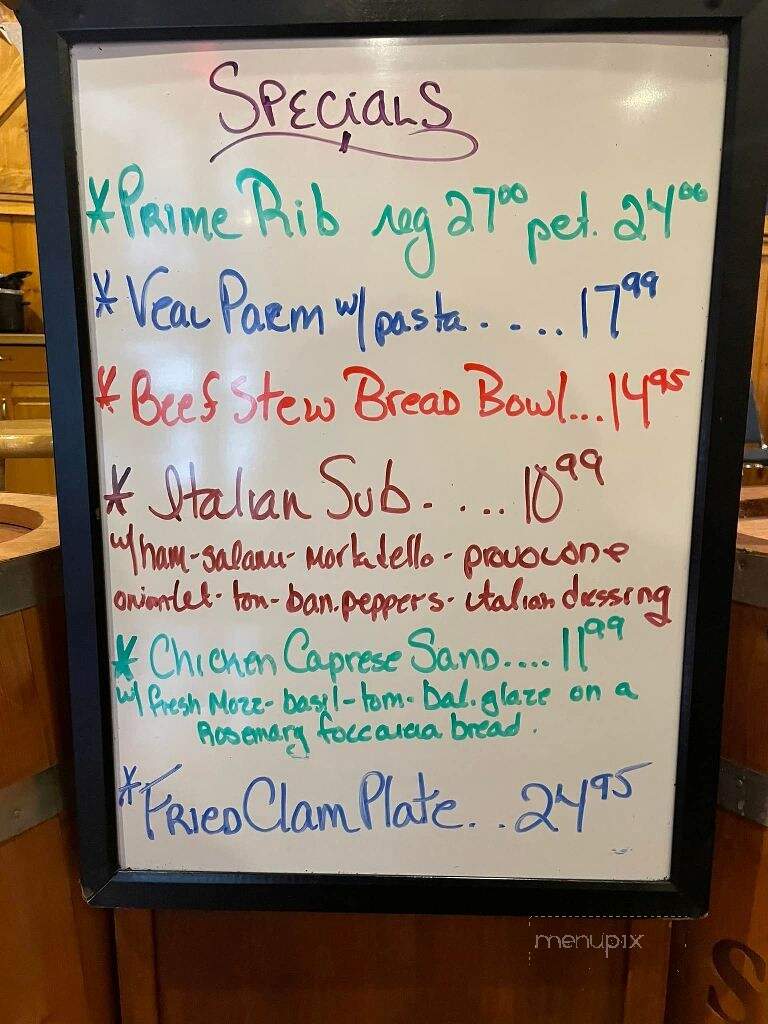 SPECIALS
* PRIME Rib reg 27⁰⁰ pet. 24⁰⁰
* VEAL PARM w/ pasta . . . . 17⁹⁹
* BEEF Stew BREAD BOWL...14⁹⁵
* Italian Sub. . . . . 10⁹⁹
w/ ham-salami-mortadello-provocone
onion-let-tom-ban.peppers-italian dressing
* CHICKEN CAPRESE SAND....11⁹⁹
w/ fresh Mozz-basil-tom-bal.glaze on a
Rosemary foccaicia bread.
* FRIED Clam Plate. . . 24⁹⁵
menupix
S